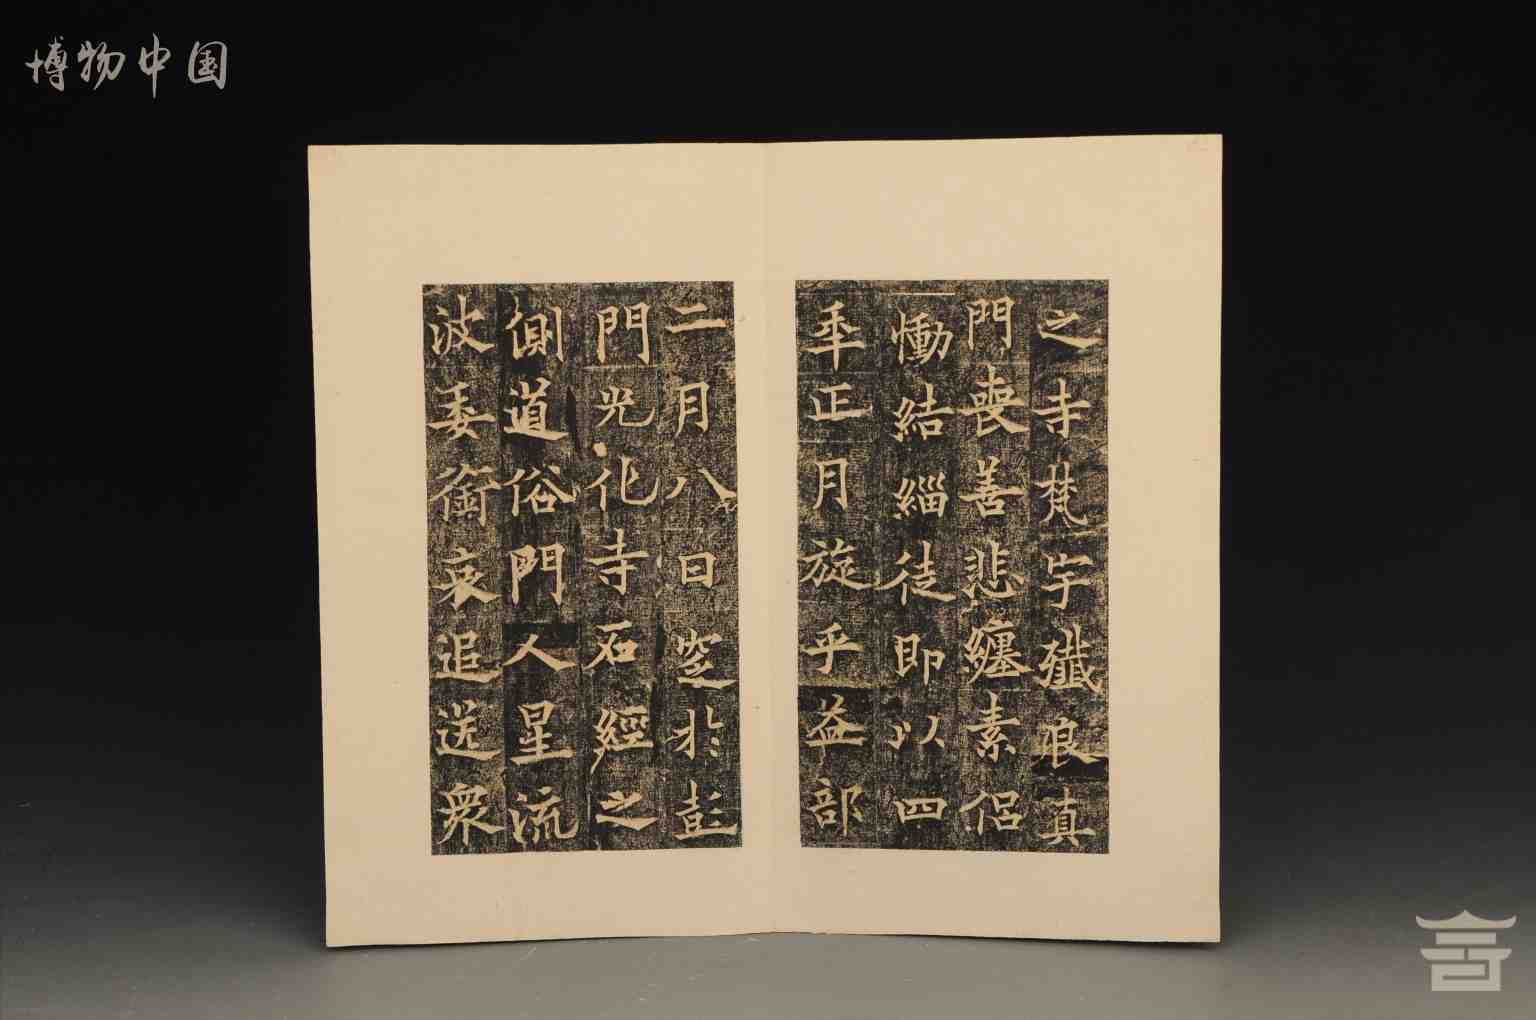 博物中国
之寺梵宇殲良真
門喪善悲纏素侣
慟結緇徒即以四
年正月旋乎益部
二月八日窆於彭
門光化寺石經之
側道俗門人星流
波委銜哀追送衆